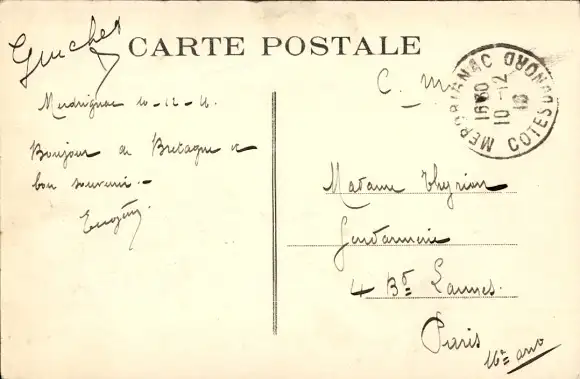 Guichet
CARTE POSTALE
C. M.
MERDRIGNAC
16 30
10-12
COTES DU NORD
Merdrignac 10-12-
Bonjour de Bretagne et
bon souvenir.-
Madame Thyrion
Gendarmerie
4 Bd Lannes.
Paris
16e arro